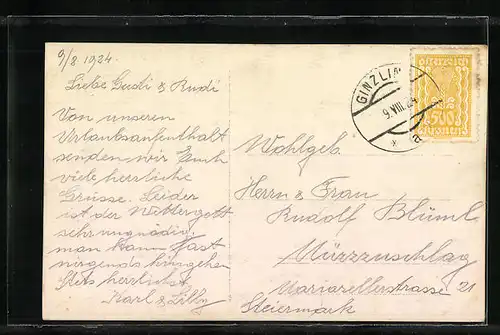 9/8. 1924.
Liebe Gusti & Rudi
Von unseren
Urlaubsaufenthalt
senden wir Euch
viele herrliche
Grüsse. Leider
ist der Wittergott
sehr ungnädig,
man kann fast
nirgends hingehen
Stets herzlichst
Karl & Lilly
GINZLING
9.VIII.24
* a
österreich
500
Kronen
Wohlgeb.
Herrn & Frau
Rudolf Blüml
Mürzzuschlag
Mariazellerstrasse 21
Steiermark